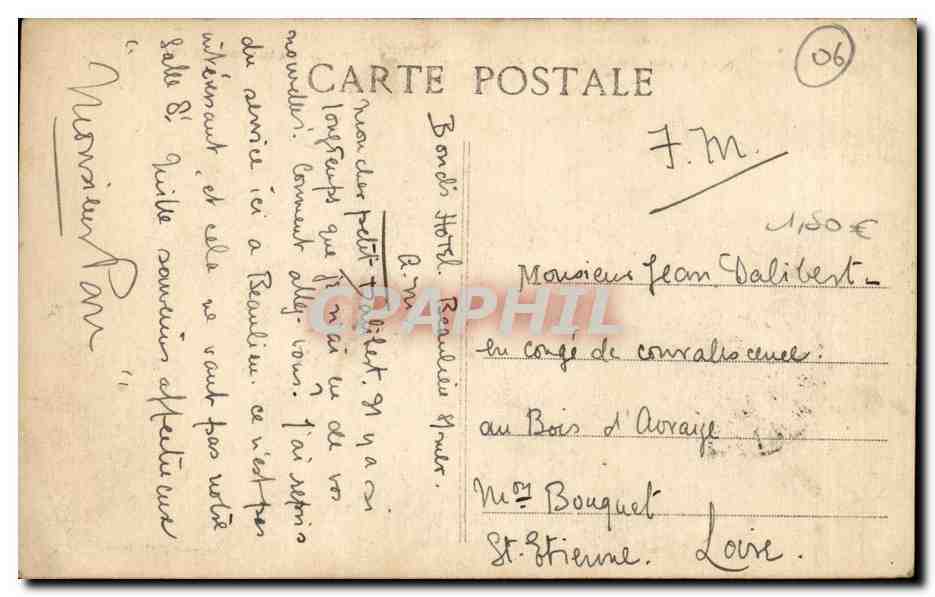 CARTE POSTALE
06
F.M.
1,50€
Monsieur Jean Dalibert
en congé de convalescence.
au Bois d'Avraize
Mon Bouquet
St. Etienne. Loire.
Bond's Hotel. Beaulieu s/mer.
A.M
mon cher petit Dalibert. Il y a si
longtemps que je n'ai eu de vos
nouvelles. Comment allez-vous? J'ai repris
du service ici a Beaulieu. ce n'est pas
intéressant, et cela ne vaut pas notre
Salle 8. Mille souvenirs affectueux
" Monsieur Pan "
CPAPHIL